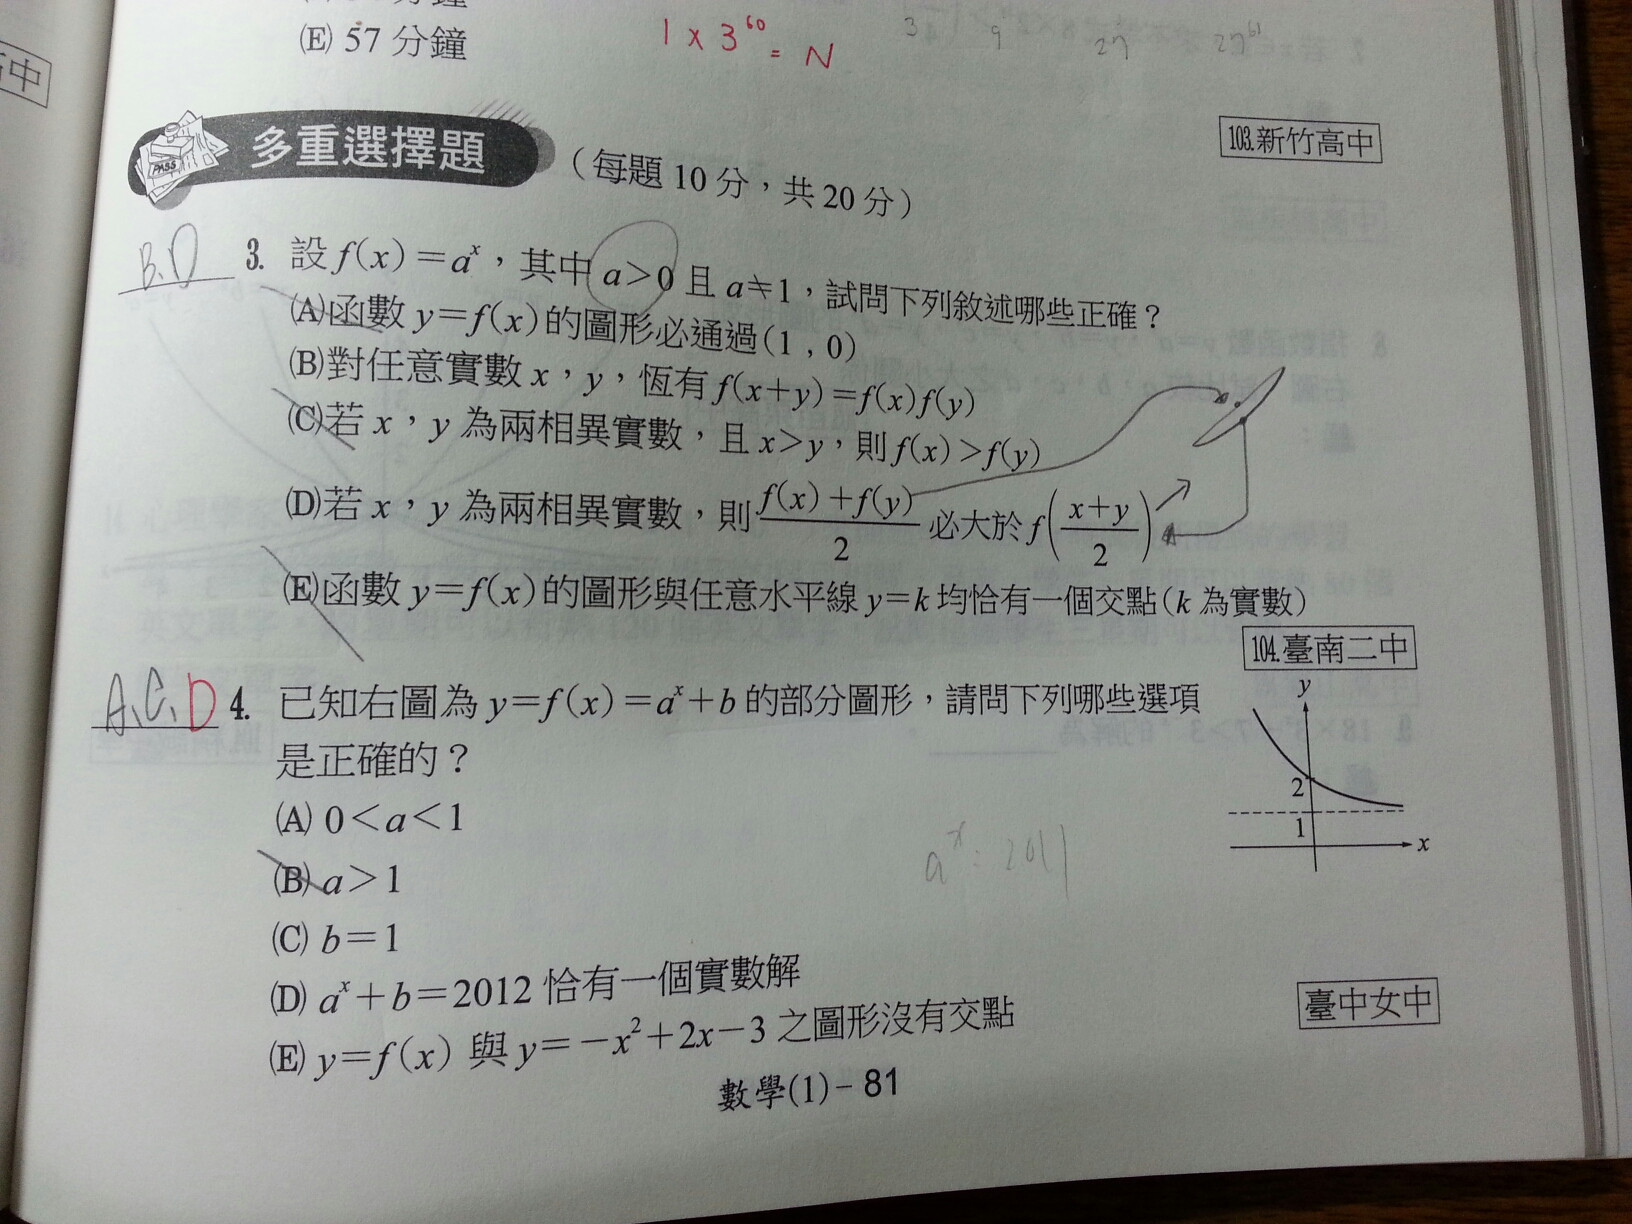 (E) 57 分鐘
1 x 3^60 = N
3 9 27 27^61
高中
多重選擇題 (每題10分,共20分)
103.新竹高中
PASS
B.D 3. 設 f(x)=a^x,其中 a>0 且 a≠1,試問下列敘述哪些正確?
(A)函數 y=f(x)的圖形必通過(1,0)
(B)對任意實數 x,y,恆有 f(x+y)=f(x)f(y)
(C)若 x,y 為兩相異實數,且 x>y,則 f(x)>f(y)
(D)若 x,y 為兩相異實數,則 (f(x)+f(y))/2 必大於 f((x+y)/2)
(E)函數 y=f(x)的圖形與任意水平線 y=k 均恰有一個交點(k 為實數)
104.臺南二中
A、C、D 4. 已知右圖為 y=f(x)=a^x+b 的部分圖形,請問下列哪些選項
是正確的?
y
2
1
x
(A) 0<a<1
a^x=2011
(B) a>1
(C) b=1
(D) a^x+b=2012 恰有一個實數解
(E) y=f(x) 與 y=-x^2+2x-3 之圖形沒有交點
臺中女中
數學(1)-81